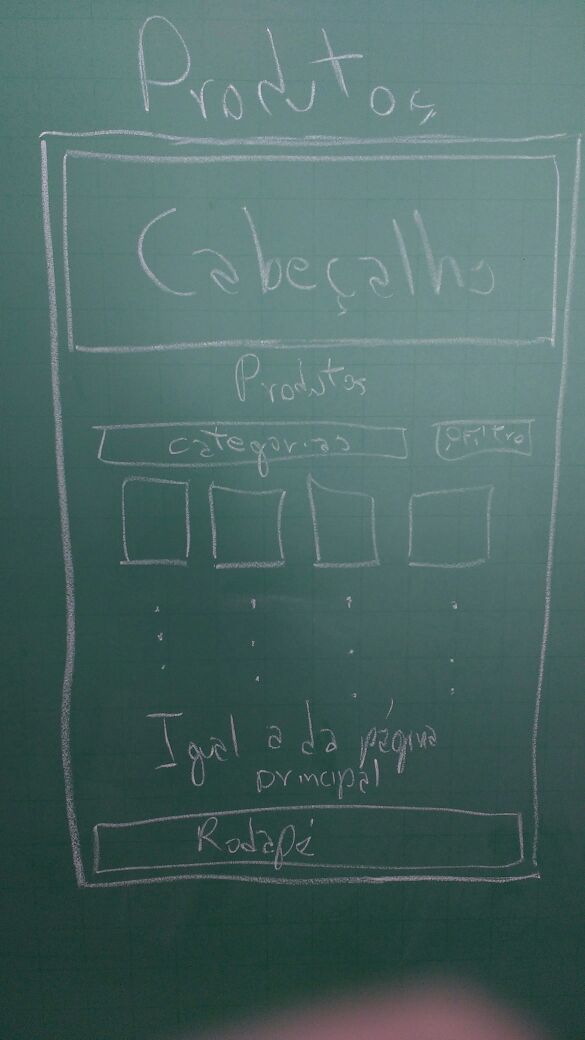 Produtos
Cabeçalho
Produtos
categorias
filtro
Igual a da página
principal
Rodapé